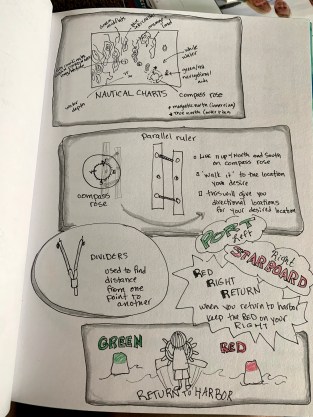 white
water
green/red
navigational
aids
water
depth
NAUTICAL CHARTS
compass rose
magnetic north (inner ring)
true north (outer ring)
parallel ruler
compass
rose
Line it up North and South
on compass rose
"walk it" to the location
you desire
this will give you
directional locations
for your desired location
DIVIDERS
used to find
distance
from one
point to
another
PORT
Left
Right
STARBOARD
RED
RIGHT
RETURN
when you return to harbor
keep the RED on your
RIGHT
GREEN
RED
RETURN to HARBOR